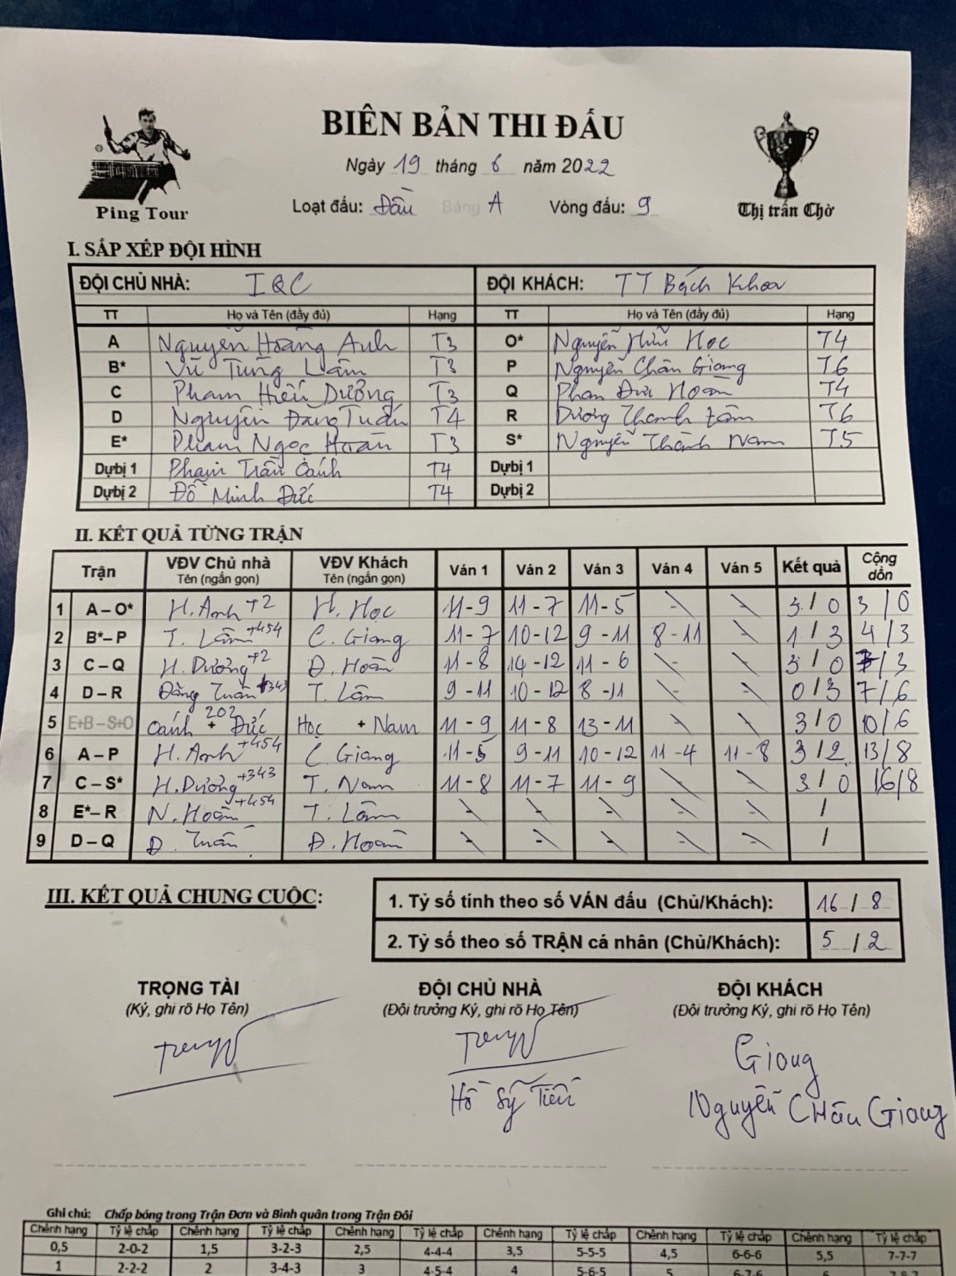 BIÊN BẢN THI ĐẤU
Ngày 19 tháng 6 năm 2022
Loạt đấu: Đầu Bảng A Vòng đấu: 9
Ping Tour
Thị trấn Chờ
I. SẮP XẾP ĐỘI HÌNH
ĐỘI CHỦ NHÀ: IQC ĐỘI KHÁCH: TT Bách Khoa
TT Họ và Tên (đầy đủ) Hạng TT Họ và Tên (đầy đủ) Hạng
A Nguyễn Hoàng Anh T3 O* Nguyễn Hữu Học T4
B* Vũ Tùng Lâm T3 P Nguyễn Châu Giang T6
C Phạm Hiếu Dưỡng T3 Q Phan Đức Hoàn T4
D Nguyễn Đăng Tuấn T4 R Dương Thanh Lâm T6
E* Phạm Ngọc Hoan T3 S* Nguyễn Thành Nam T5
Dự bị 1 Phạm Trần Cảnh T4 Dự bị 1
Dự bị 2 Đỗ Minh Đức T4 Dự bị 2
II. KẾT QUẢ TỪNG TRẬN
Trận VĐV Chủ nhà Tên (ngắn gọn) VĐV Khách Tên (ngắn gọn) Ván 1 Ván 2 Ván 3 Ván 4 Ván 5 Kết quả Cộng dồn
1 A – O* H. Anh +2 H. Học 11-9 11-7 11-5 3/0 3/0
2 B*– P T. Lâm +454 C. Giang 11-7 10-12 9-11 8-11 1/3 4/3
3 C – Q H. Dưỡng +2 Đ. Hoàn 11-8 14-12 11-6 3/0 7/3
4 D – R Đăng Tuấn +343 T. Lâm 9-11 10-12 8-11 0/3 7/6
5 E+B – S+O Cảnh + Đức 202 Học + Nam 11-9 11-8 13-11 3/0 10/6
6 A – P H. Anh +454 C. Giang 11-5 9-11 10-12 11-4 11-8 3/2 13/8
7 C – S* H. Dưỡng +343 T. Nam 11-8 11-7 11-9 3/0 16/8
8 E*– R N. Hoan +454 T. Lâm /
9 D – Q Đ. Tuấn Đ. Hoàn /
III. KẾT QUẢ CHUNG CUỘC:
1. Tỷ số tính theo số VÁN đấu (Chủ/Khách): 16 / 8
2. Tỷ số theo số TRẬN cá nhân (Chủ/Khách): 5 / 2
TRỌNG TÀI ĐỘI CHỦ NHÀ ĐỘI KHÁCH
(Ký, ghi rõ Họ Tên) (Đội trưởng Ký, ghi rõ Họ Tên) (Đội trưởng Ký, ghi rõ Họ Tên)
Giang
Hồ Sỹ Tiến
Nguyễn Châu Giang
Ghi chú: Chấp bóng trong Trận Đơn và Bình quân trong Trận Đôi
Chênh hạng Tỷ lệ chấp Chênh hạng Tỷ lệ chấp Chênh hạng Tỷ lệ chấp Chênh hạng Tỷ lệ chấp Chênh hạng Tỷ lệ chấp Chênh hạng Tỷ lệ chấp
0,5 2-0-2 1,5 3-2-3 2,5 4-4-4 3,5 5-5-5 4,5 6-6-6 5,5 7-7-7
1 2-2-2 2 3-4-3 3 4-5-4 4 5-6-5 5 6-7-6